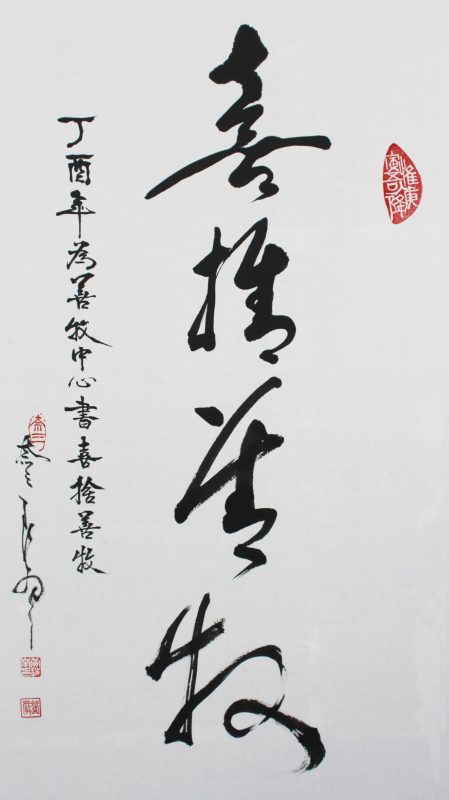 喜捨善牧
丁酉年為善牧中心書喜捨善牧